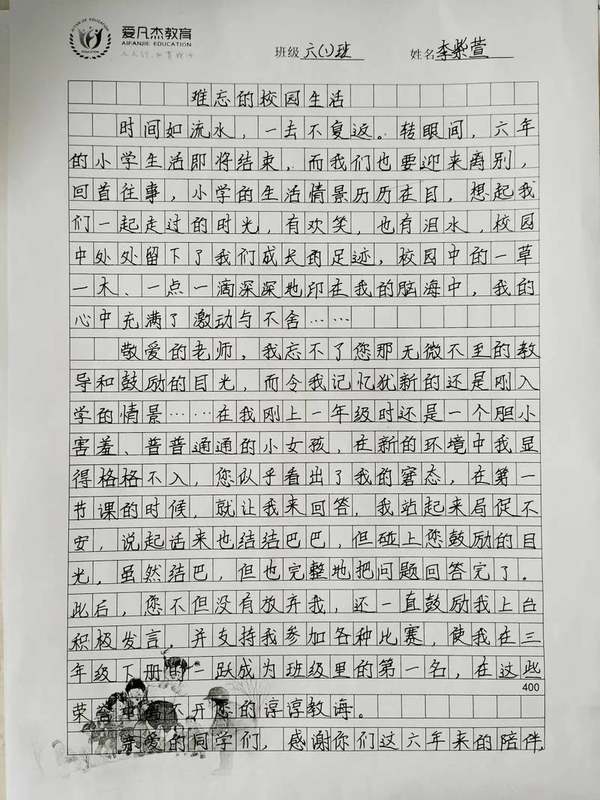 爱凡杰教育
AIFANJIE EDUCATION
班级 六(1)班 姓名 李紫萱
难忘的校园生活
时间如流水，一去不复返。转眼间，六年
的小学生活即将结束，而我们也要迎来离别，
回首往事，小学的生活情景历历在目，想起我
们一起走过的时光，有欢笑，也有泪水，校园
中处处留下了我们成长的足迹，校园中的一草
一木、一点一滴深深地印在我的脑海中，我的
心中充满了激动与不舍……
敬爱的老师，我忘不了您那无微不至的教
导和鼓励的目光，而令我记忆犹新的还是刚入
学的情景……在我刚上一年级时还是一个胆小
害羞、普普通通的小女孩，在新的环境中我显
得格格不入，您似乎看出了我的窘态，在第一
节课的时候，就让我来回答，我站起来局促不
安，说起话来也结结巴巴，但碰上您鼓励的目
光，虽然结巴，但也完整地把问题回答完了。
此后，您不但没有放弃我，还一直鼓励我上台
积极发言，并支持我参加各种比赛，使我在三
年级下册的一跃成为班级里的第一名，在这些
400
荣誉中离不开您的谆谆教诲。
亲爱的同学们，感谢你们这六年来的陪伴，